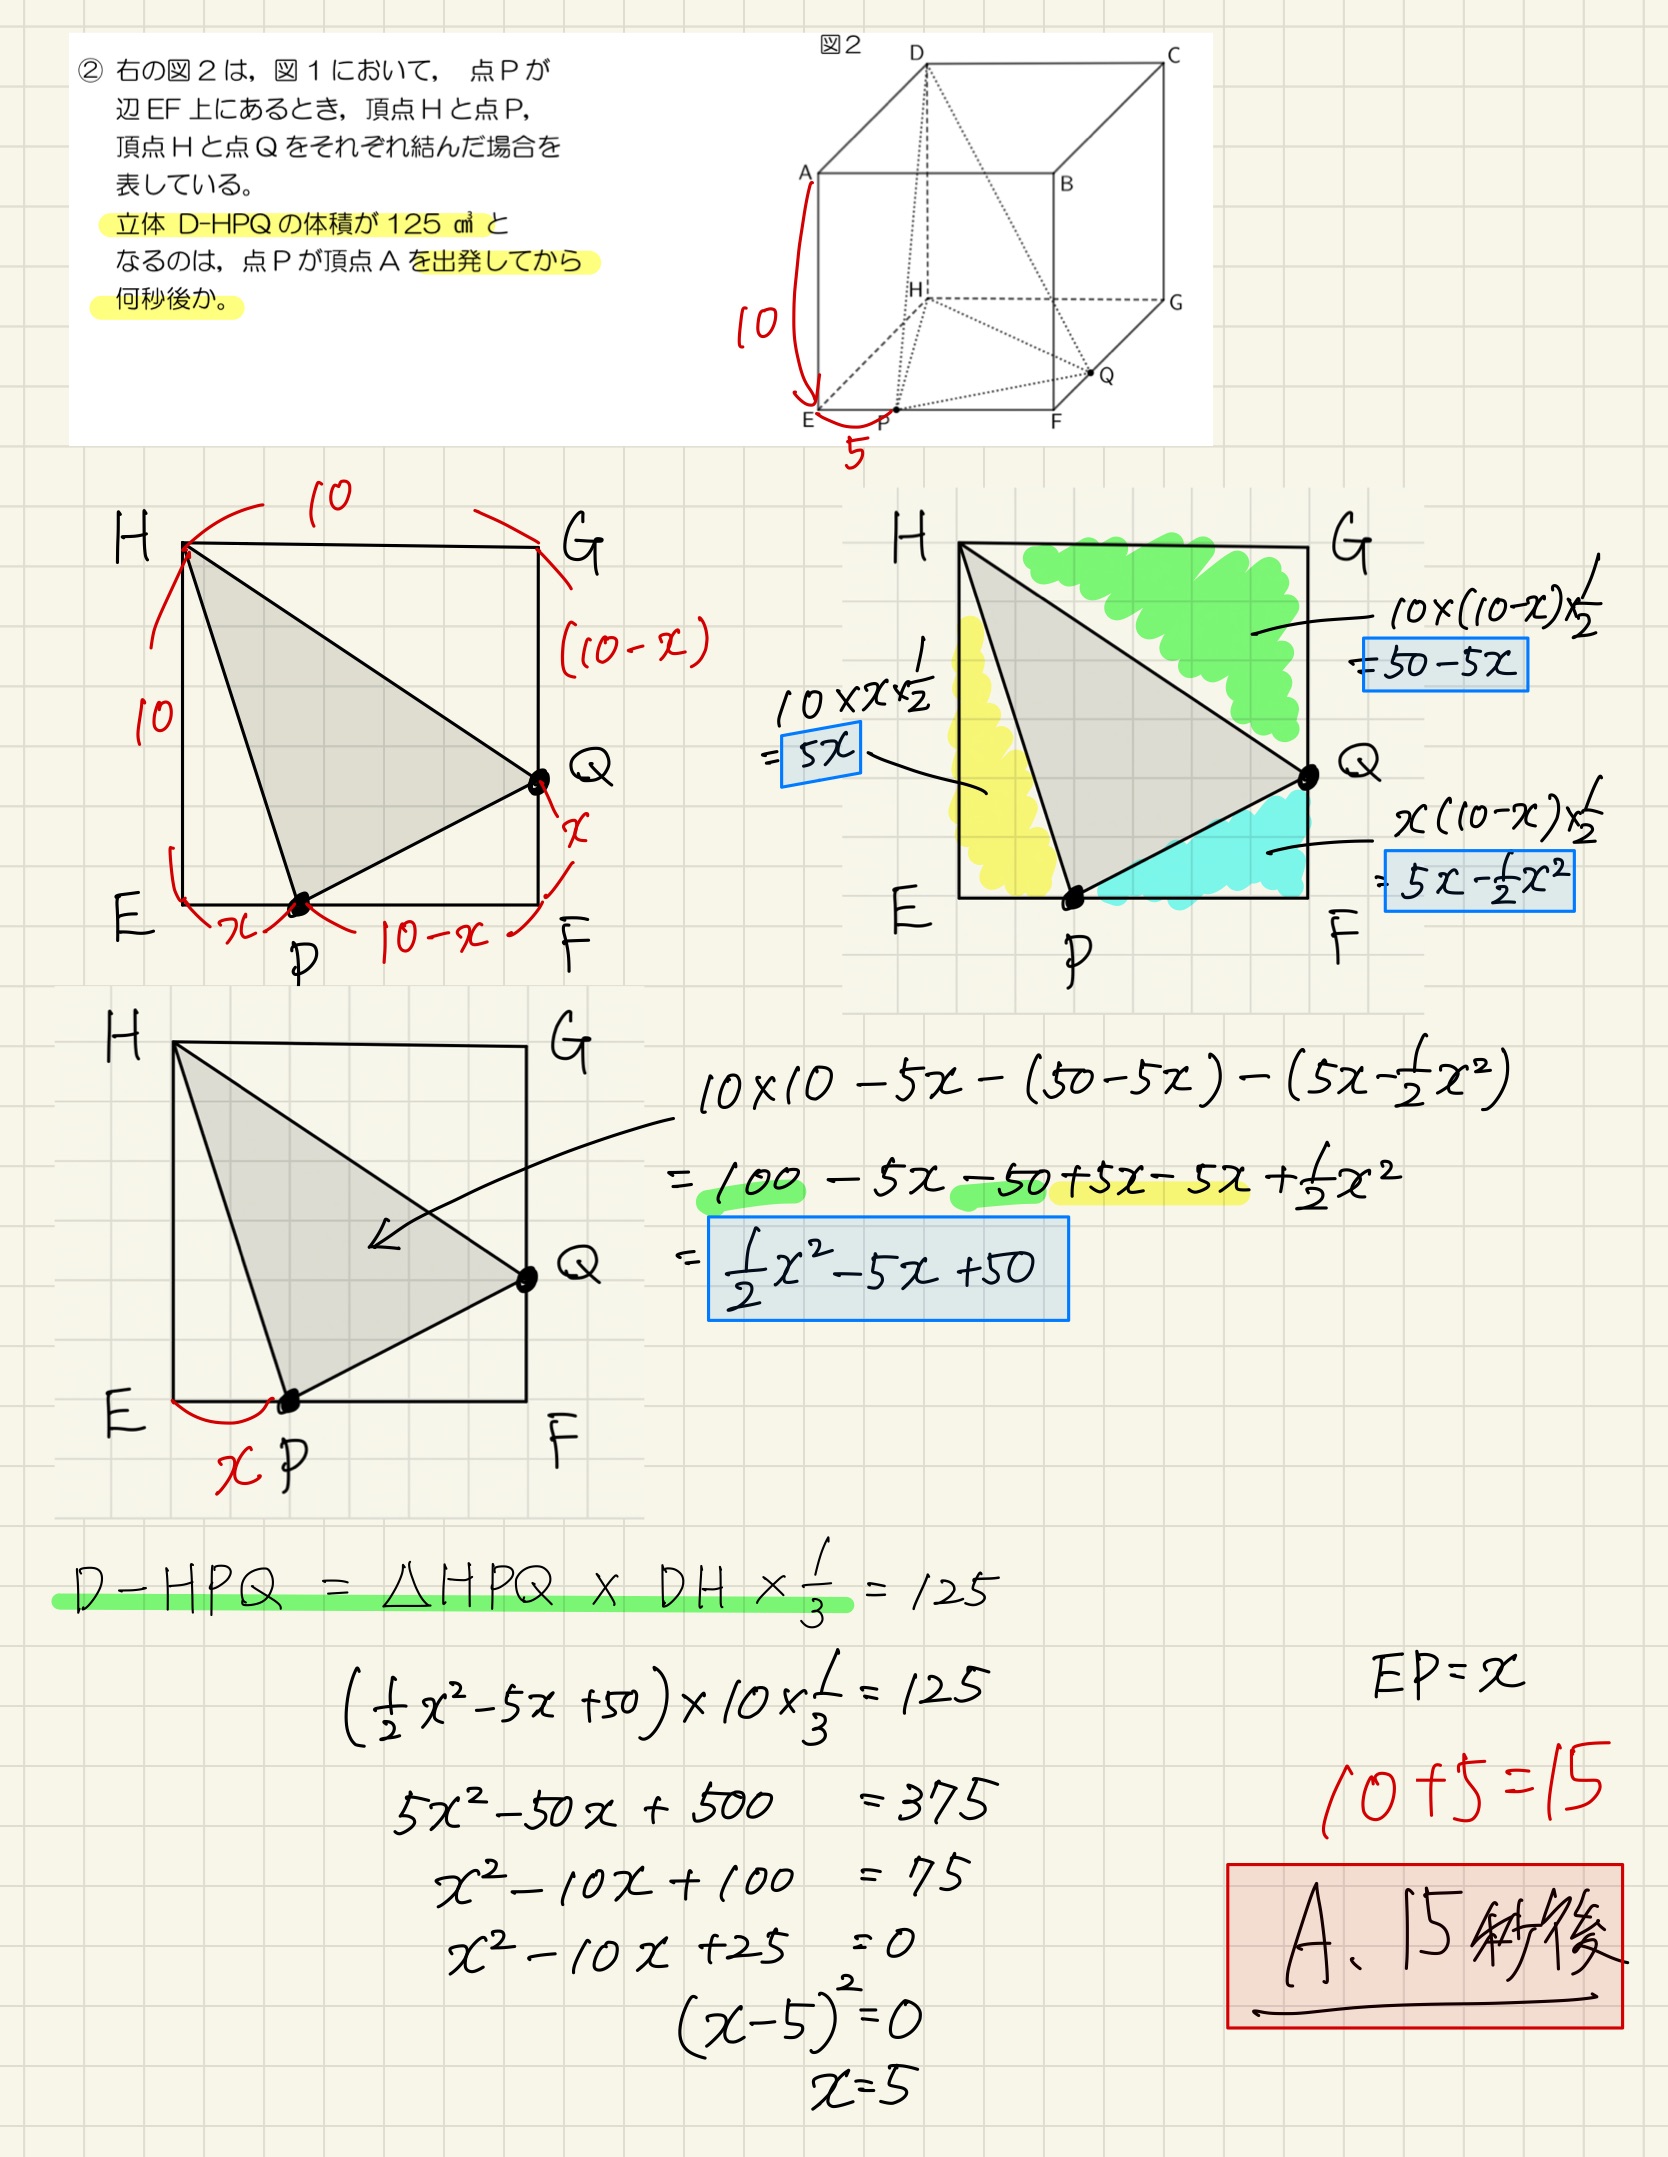 ② 右の図2は，図1において， 点Pが
辺EF上にあるとき，頂点Hと点P，
頂点Hと点Qをそれぞれ結んだ場合を
表している。
立体 D-HPQ の体積が 125 ㎤ と
なるのは，点Pが頂点Aを出発してから
何秒後か。
図2
D
C
A
B
10
H
G
Q
E
P
F
5
10
H
G
(10-x)
10
Q
x
E
x
10-x
F
P
H
G
10×(10-x)×1/2
=50-5x
10×x×1/2
=5x
Q
x(10-x)×1/2
=5x-1/2x²
E
F
P
H
G
10×10-5x-(50-5x)-(5x-1/2x²)
=100-5x-50+5x-5x+1/2x²
=1/2x²-5x+50
Q
E
F
x
P
D-HPQ = △HPQ × DH × 1/3 = 125
(1/2x²-5x+50)×10×1/3=125
5x²-50x+500 =375
x²-10x+100 =75
x²-10x+25 =0
(x-5)²=0
x=5
EP=x
10+5=15
A、15秒後